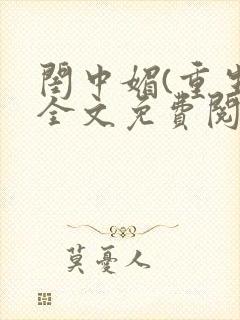 閨中媚(重生
全文免費閱
莫憂人